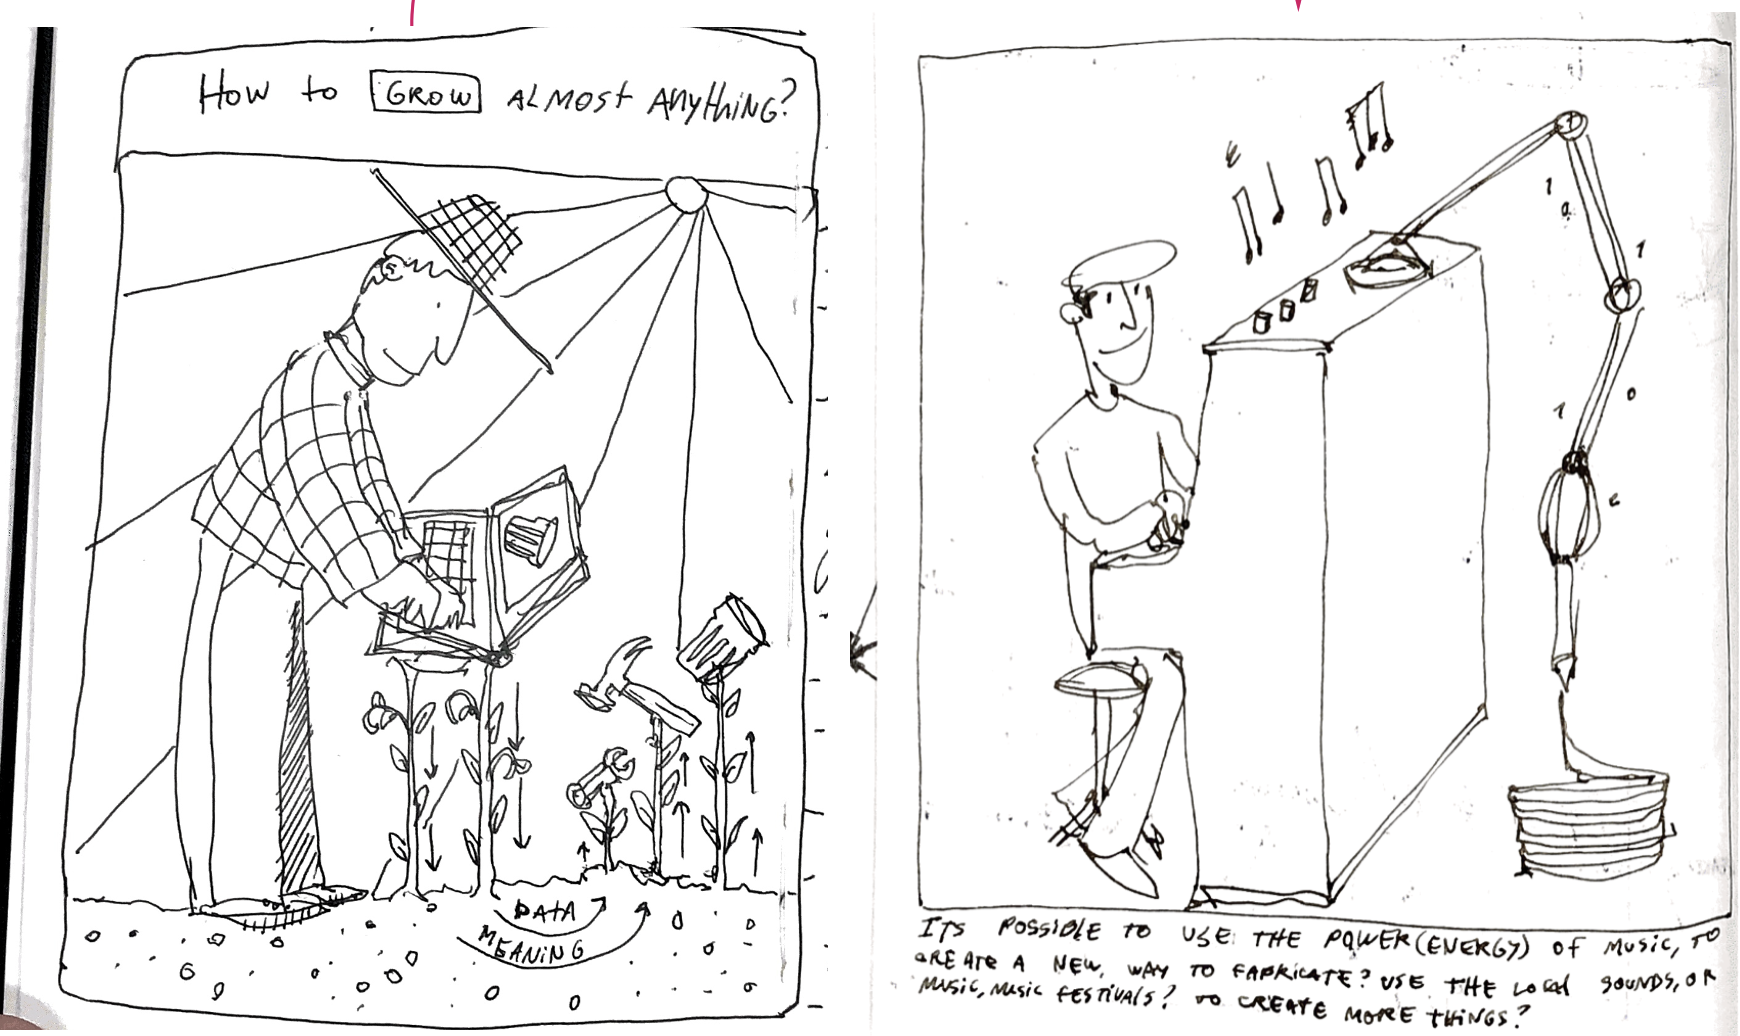 HOW to GROW ALMOST ANYTHING?
DATA
MEANING
1
0
1
1
0
ITS POSSIBLE TO USE THE POWER (ENERGY) OF MUSIC, TO
CREATE A NEW WAY TO FABRICATE? USE THE LOCAL SOUNDS, OR
MUSIC, MUSIC FESTIVALS? TO CREATE MORE THINGS?